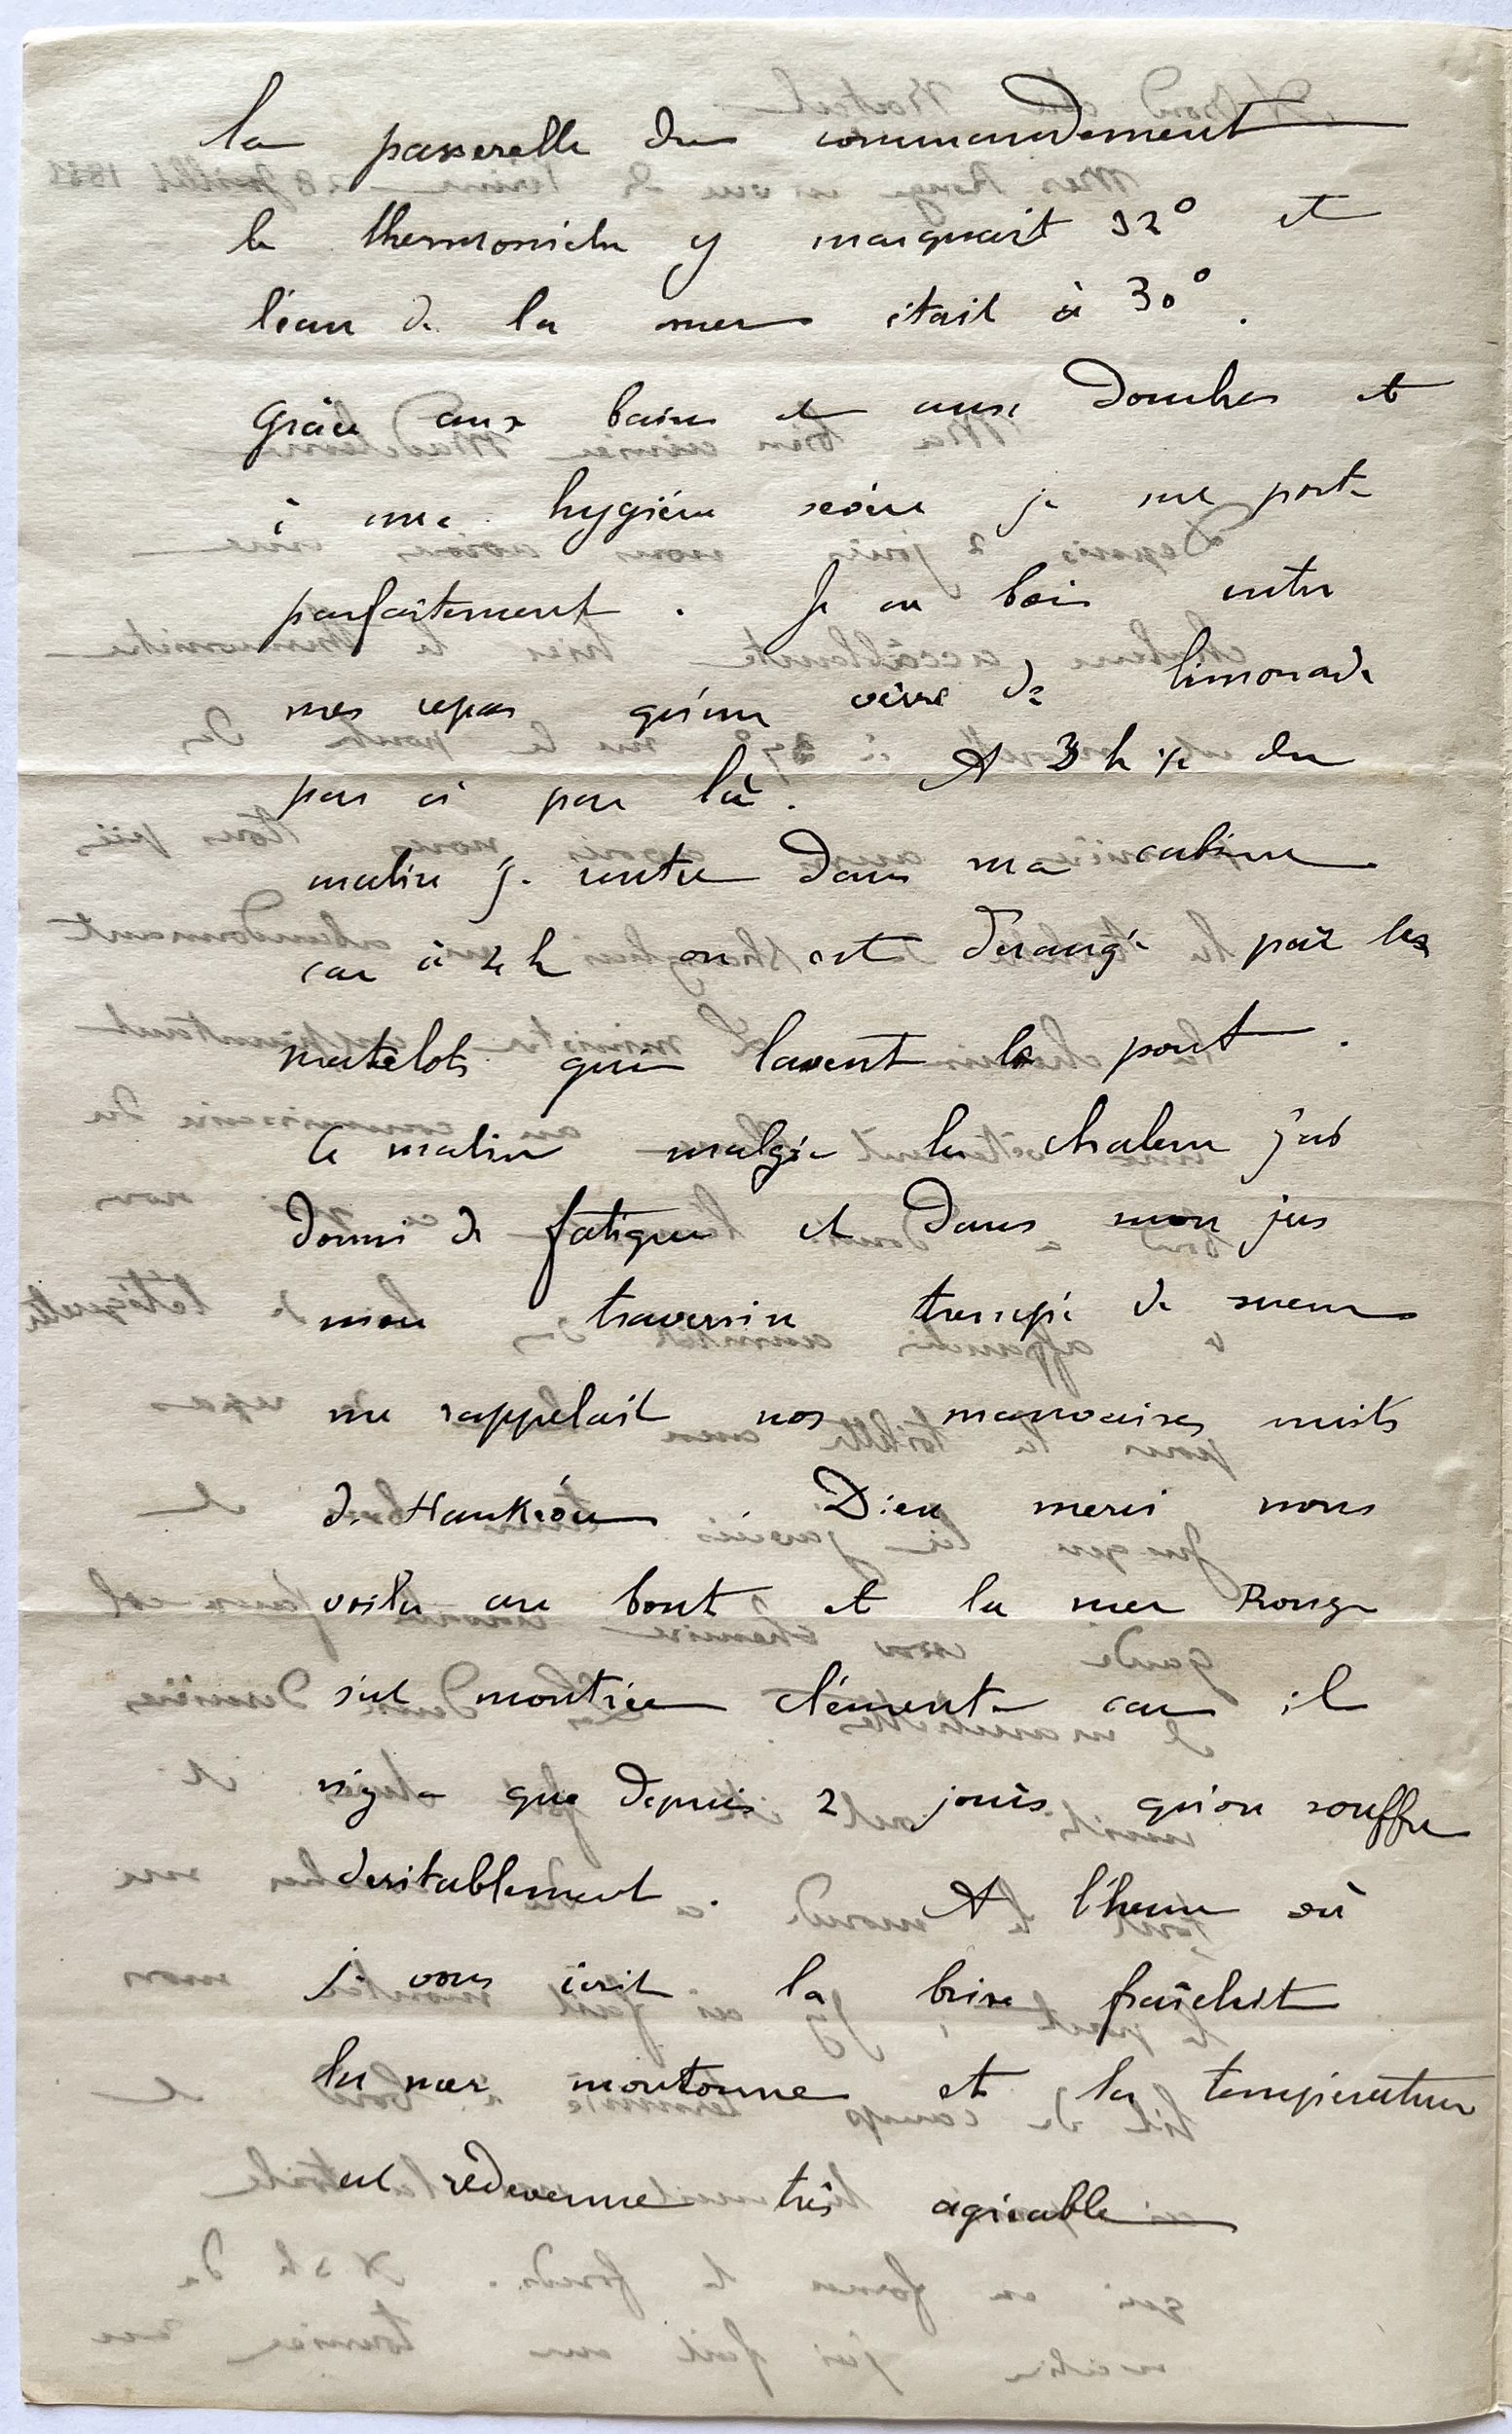 la passerelle du commandement
le thermomètre y marquait 32° et
l'eau de la mer était à 30°.
Grâce aux bains et aux douches et
à une hygiène sévère je me porte
parfaitement. Je ne bois entre
mes repas qu'un verre de limonade
par ci par là. A 3 h ½ du
matin je rentre dans ma cabine
car à 4 h on est dérangé par les
matelots qui lavent le pont.
Ce matin malgré la chaleur j'ai
dormi de fatigue et dans mon jus
mon traversin trempé de sueur
me rappelait nos mauvaises nuits
de Hankéou. Dieu merci nous
voilà au bout et la mer Rouge
s'est montrée clémente car il
n'y a que depuis 2 jours qu'on souffre
véritablement. A l'heure où
je vous écrit la brise fraîchit
la mer moutonne et la température
est redevenue très agréable